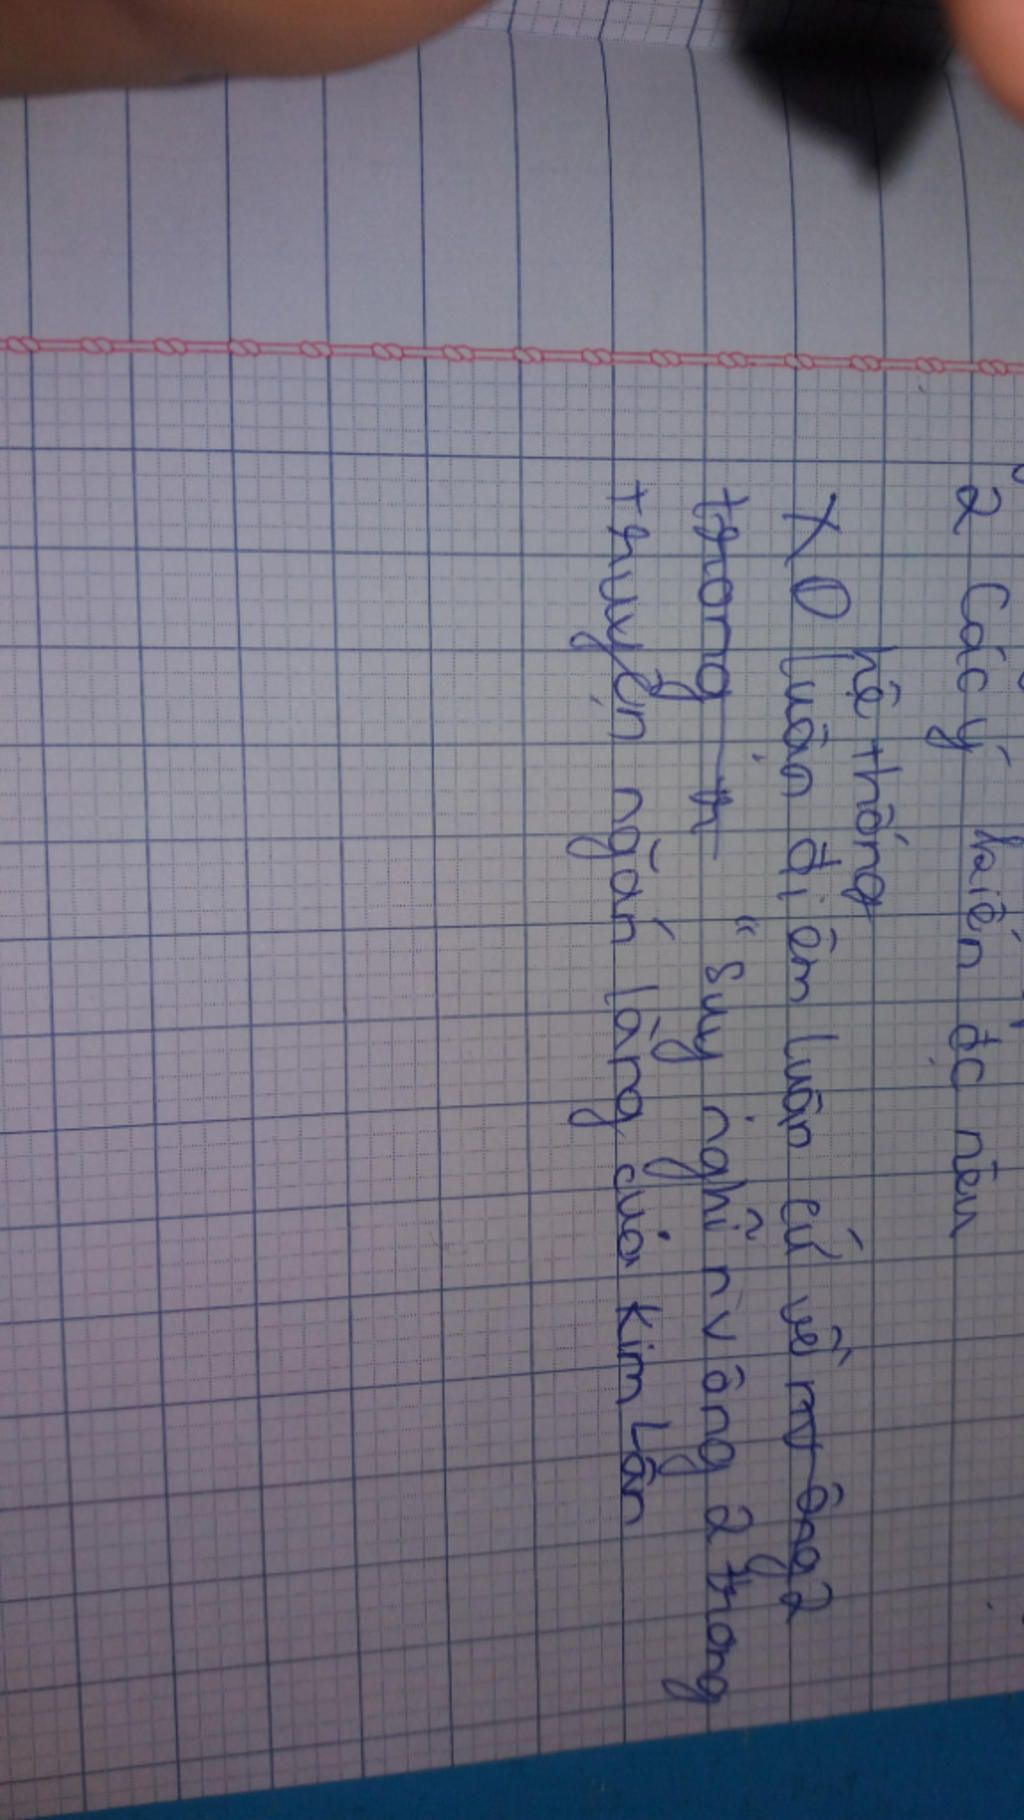 2 Các ý kiến đc nêu
hệ thống
XĐ luận điểm luận cứ về nv ông 2
trong "Suy nghĩ nv ông 2 trong
truyện ngắn làng của Kim Lân